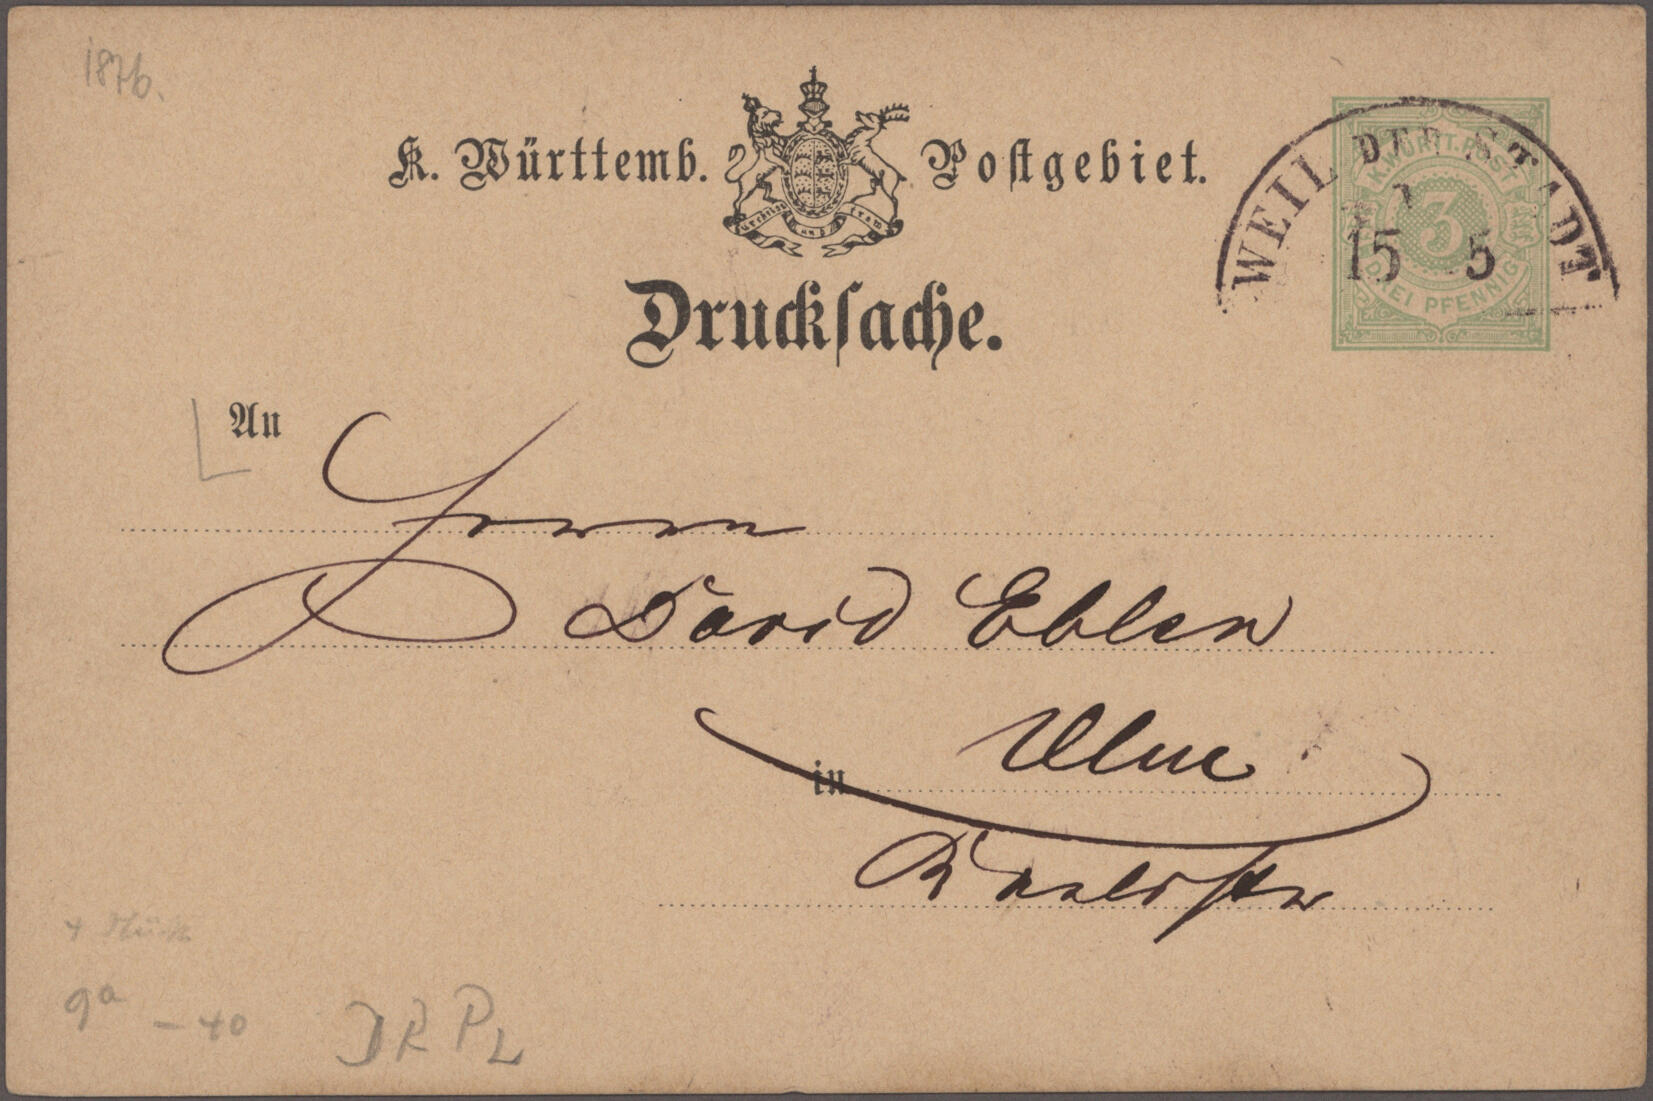 1876.
K. Württemb. Postgebiet.
furchtlos und trew
WEIL DER STADT
15 5
K. WÜRTT. POST
3
DREI PFENNIG
Drucksache.
An
Herrn
David Eblen
in Ulm
9a
- 40
DRPL